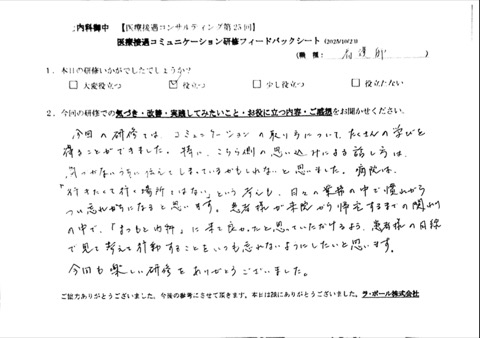 内科御中 【医療接遇コンサルティング第25回】
医療接遇コミュニケーション研修フィードバックシート (2025/10/23)
(職 種: 看護師 )
1. 本日の研修いかがでしたでしょうか?
□ 大変役立つ ☑ 役立つ □ 少し役立つ □ 役立たない
2. 今回の研修での気づき・改善・実践してみたいこと・お役に立つ内容・ご感想をお聞かせください。
今回の研修では、コミュニケーションの取り方について、たくさんの学びを
得ることができました。特に、こちら側の思い込みによる話し方は、
気づかないうちに伝えてしまっているかもしれないと思いました。病院は、
"行きたくて行く場所ではない"という考えも、日々の業務の中で慣れから
つい忘れがちになると思います。患者様が来院から帰宅するまでの関わり
の中で、「まつもと内科」に来て良かったと思っていただけるよう、患者様の目線
で見て考えて行動することをいつも忘れないようにしたいと思います。
今回も楽しい研修をありがとうございました。
ご協力ありがとうございました。今後の参考にさせて頂きます。本日は誠にありがとうございました。 ラ・ポール株式会社